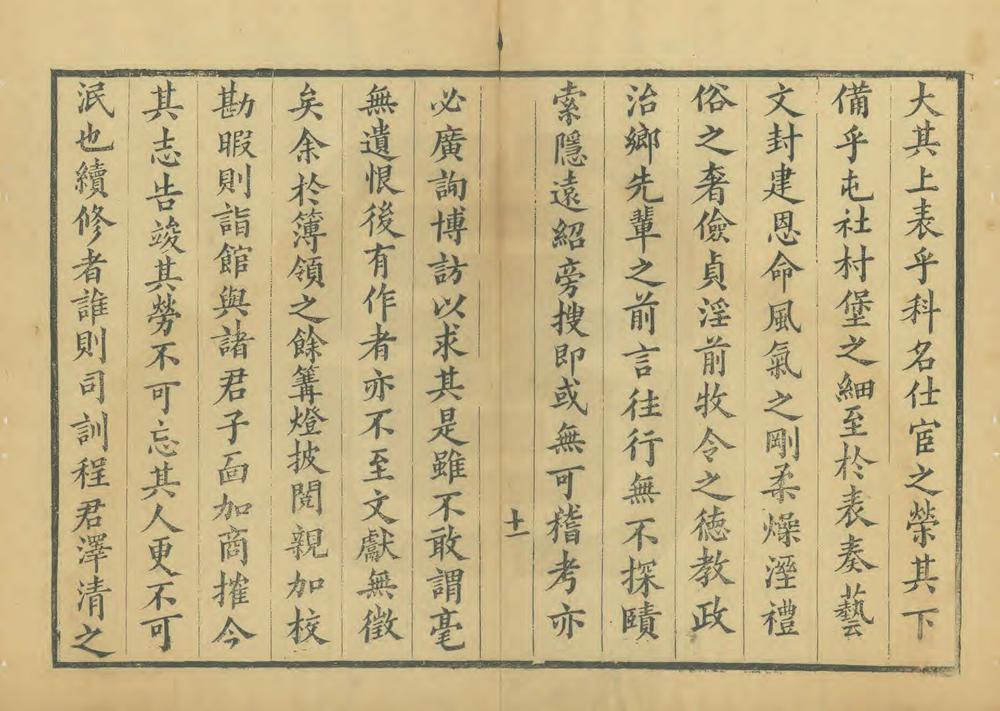 大其上表乎科名仕宦之榮其下
備乎屯社村堡之細至於表奏藝
文封建恩命風氣之剛柔燥溼禮
俗之奢儉貞淫前牧令之德教政
治鄉先輩之前言往行無不探賾
索隱遠紹旁搜即或無可稽考亦
十一
必廣詢博訪以求其是雖不敢謂毫
無遺恨後有作者亦不至文獻無徵
矣余於簿領之餘篝燈披閱親加校
勘暇則詣館與諸君子面加商搉今
其志告竣其勞不可忘其人更不可
泯也續修者誰則司訓程君澤清之